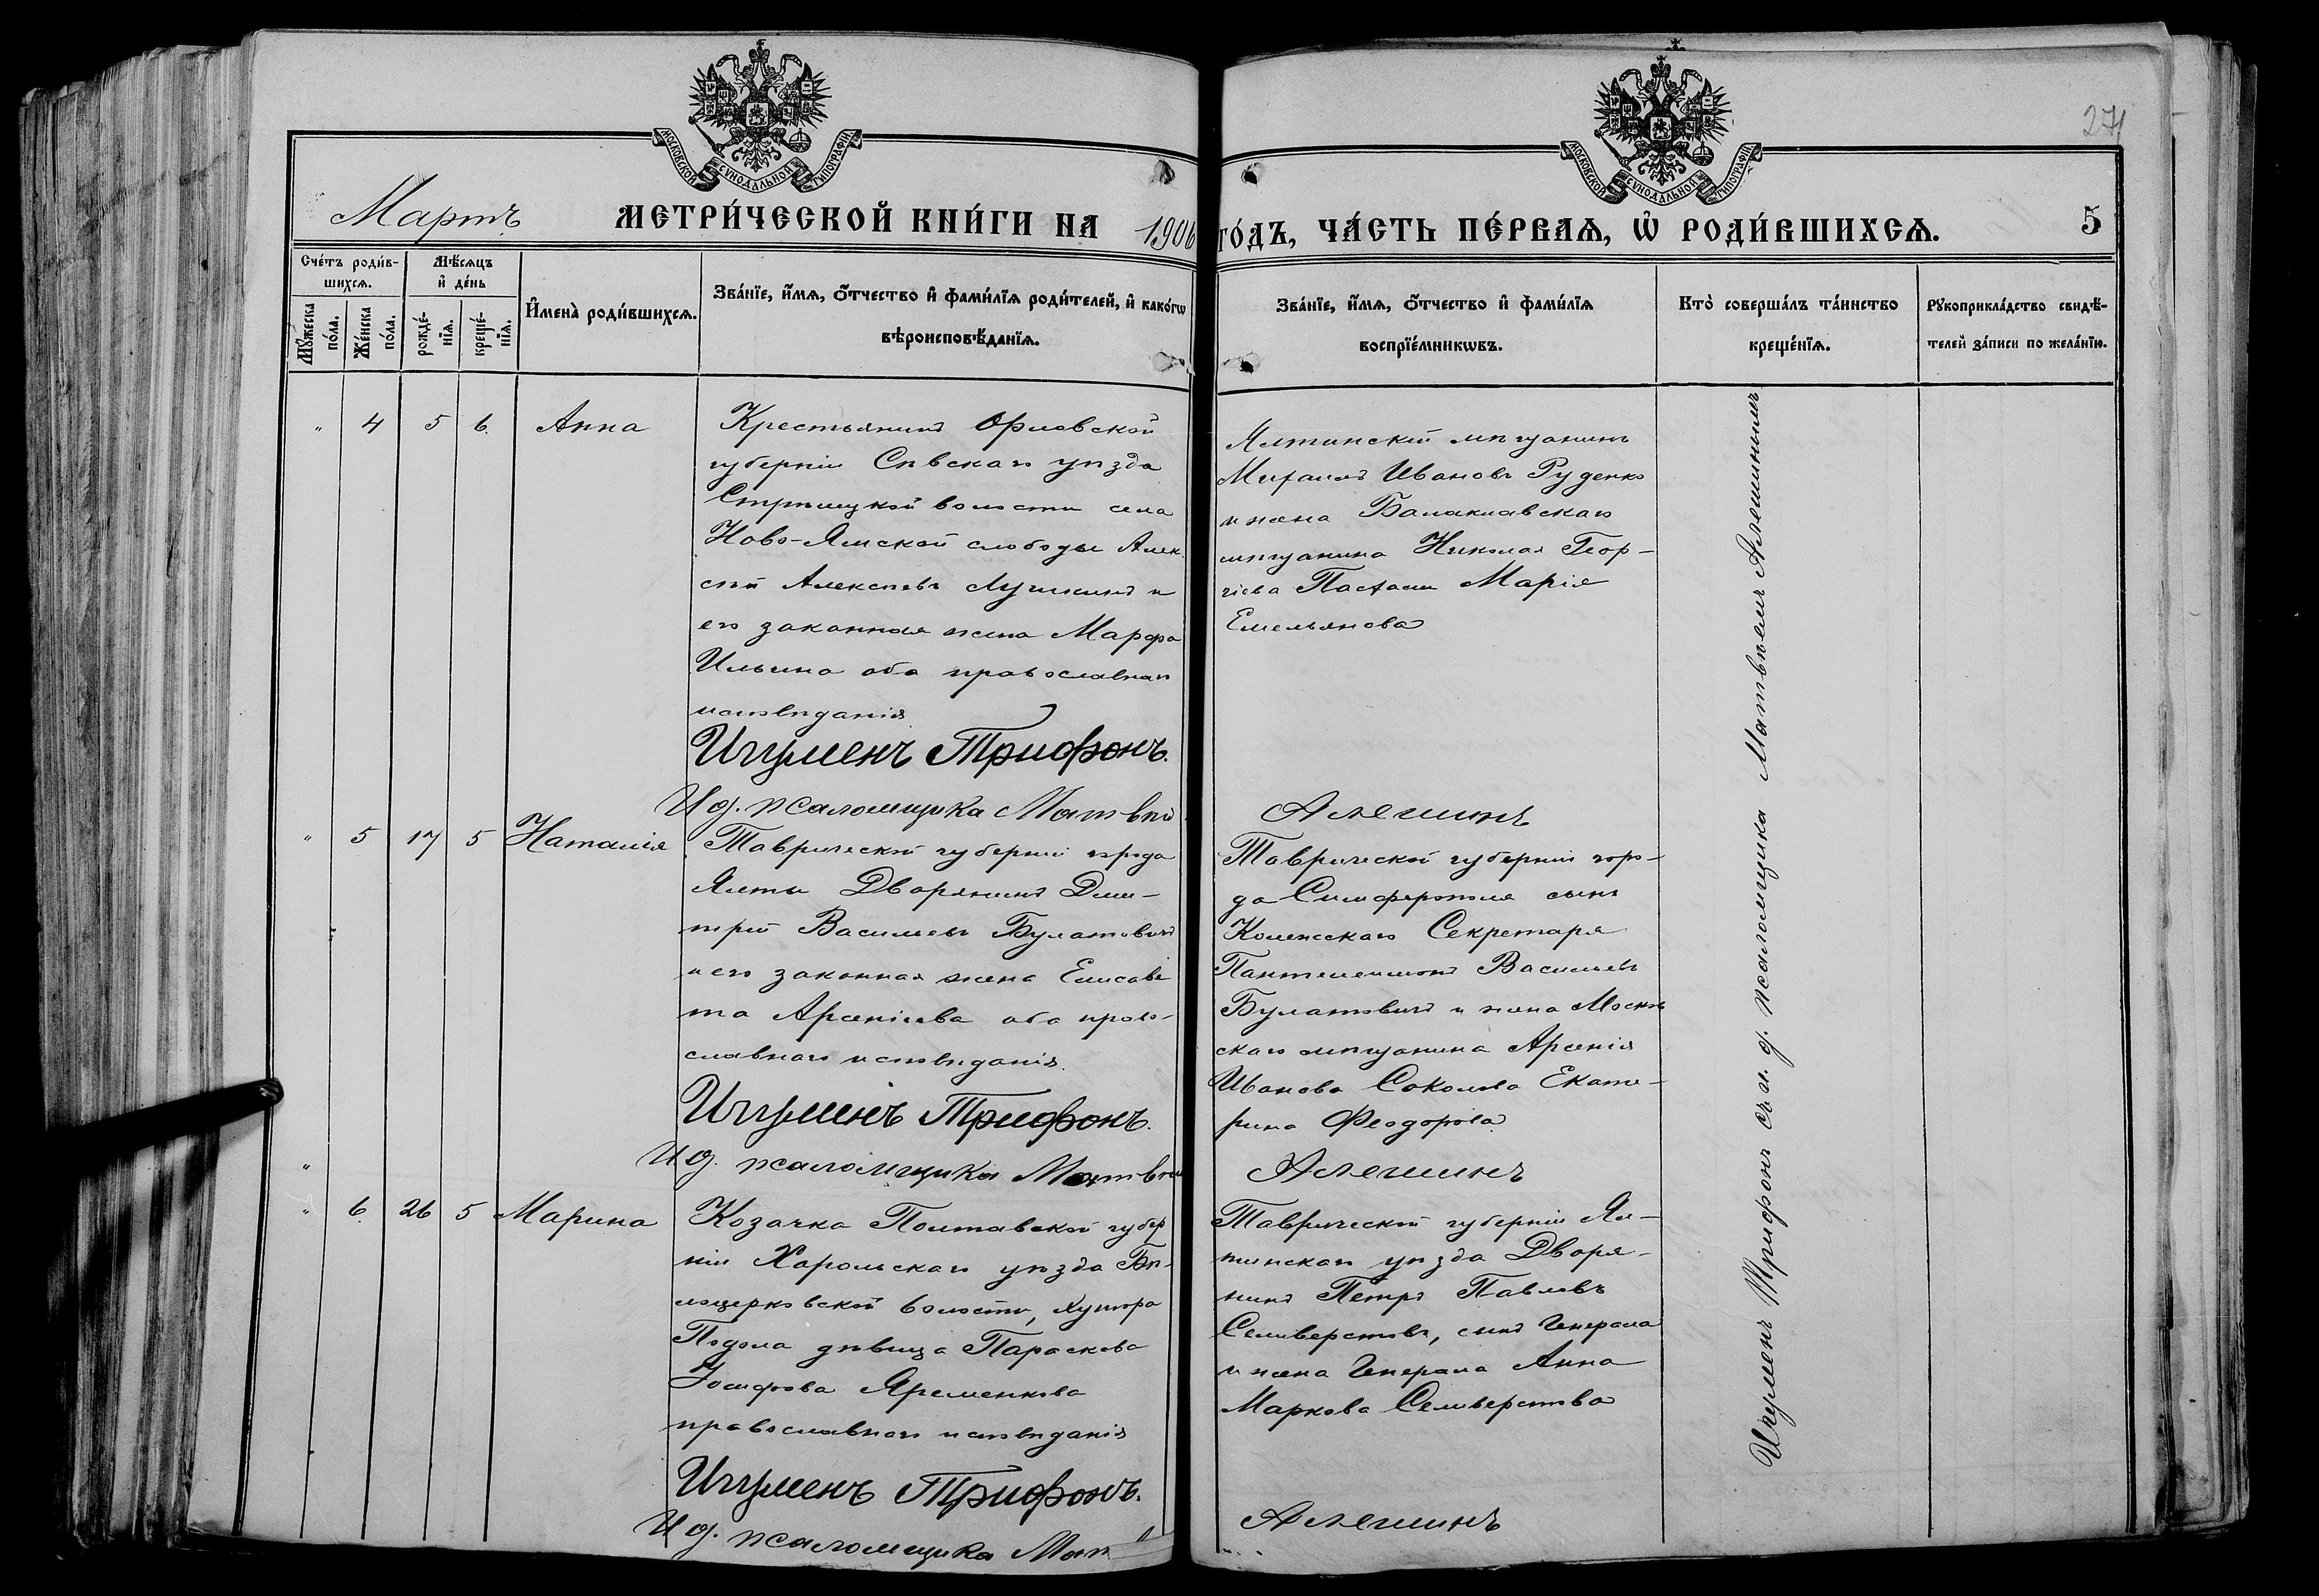 МОСКОВСКОЙ СѴНОДАЛЬНОЙ ТИПОГРАФІИ
МОСКОВСКОЙ СѴНОДАЛЬНОЙ ТИПОГРАФІИ
271
Мартъ
МЕТРИ́ЧЕСКОЙ КНИ́ГИ НА 1906
ГО́ДЪ, ЧА́СТЬ ПЕ́РВАЯ, Ѡ҆ РОДИ́ВШИХСЯ.
5
Сче́тъ роди́в-
шихся.
Мѣ́сяцъ
и҆ де́нь
Мꙋ́жеска
по́ла.
Же́нска
по́ла.
рожде́-
нїя.
креще́-
нїя.
И҆мена̀ роди́вшихся.
Зва́нїе, и҆́мя, ѻ҆́тчество и҆ фами́лїя роди́телей, и҆ како́гѡ
вѣроисповѣ́данїя.
Зва́нїе, и҆́мя, ѻ҆́тчество и҆ фами́лїя
воспрїе́мникѡвъ.
Кто̀ соверша́лъ та́инство
креще́нїя.
Рꙋкоприкла́дство свидѣ́-
телей за́писи по жела́нїю.
" 4 5 6. Анна
Крестьянинъ Орловской
губерніи Сѣвскаго уѣзда
Стрѣлецкой волости села
Ново-Ямской слободы Алек
сѣй Алексѣевъ Лушкинъ и
его законная жена Марфа
Ильина оба православнаго
исповѣданія
Игуменъ Трифонъ.
И д. псаломщика Матвѣй
Ялтинскій мѣщанинъ
Михаилъ Ивановъ Руденко
и жена Балаклавскаго
мѣщанина Николая Геор-
гіева Мария
Емельянова
Алешинъ
" 5 17 5 Наталія
Таврической губерніи города
Ялты Дворянинъ Дми-
трій Васильевъ Булатовичъ
и его законная жена Елисаве
та Арсеніева оба право-
славнаго исповѣданія.
Игуменъ Трифонъ.
И д. псаломщика Матвѣй
Таврической губерніи горо-
да Симферополя сынъ
Коллежскаго Секретаря
Пантелеимонъ Васильевъ
Булатовичъ и жена Москов
скаго мѣщанина Арсенія
Иванова Соколова Екате-
рина Феодорова
Алешинъ
" 6. 26 5 Марина
Козачка Полтавской губер
ніи Хорольскаго уѣзда Бѣ-
лоцерковской волости, хутора
Подола дѣвица Параскева
Іосифова Яременкова
православнаго исповѣданія
Игуменъ Трифонъ.
И д. псаломщика Мат
Таврической губерніи Ял-
тинскаго уѣзда Дворя-
нинъ Петръ Павловъ
Селиверстовъ, сынъ Генерала
и жена Генерала Анна
Маркова Селиверстова
Алешинъ
Игуменъ Трифонъ съ и. д. псаломщика Матвѣемъ Алешинымъ